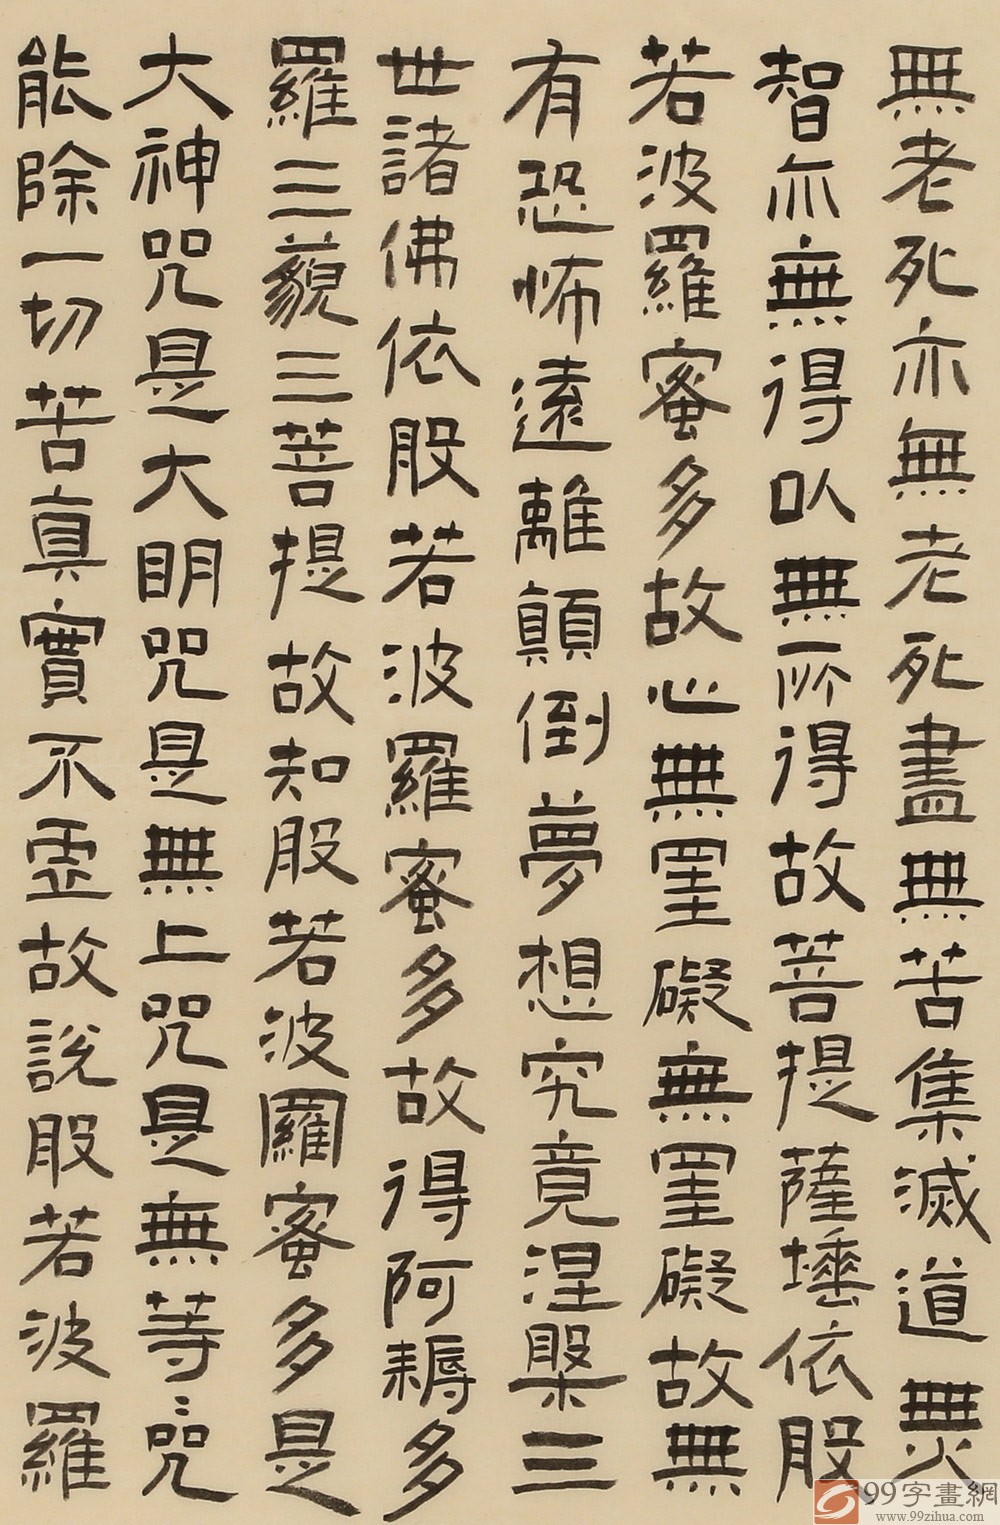 無老死亦無老死盡無苦集滅道無
智亦無得以無所得故菩提薩埵依般
若波羅蜜多故心無罣礙無罣礙故無
有恐怖遠離顛倒夢想究竟涅槃三
世諸佛依般若波羅蜜多故得阿耨多
羅三藐三菩提故知般若波羅蜜多是
大神咒是大明咒是無上咒是無等:咒
能除一切苦真實不虛故說般若波羅
99字畫網
www.99zihua.com